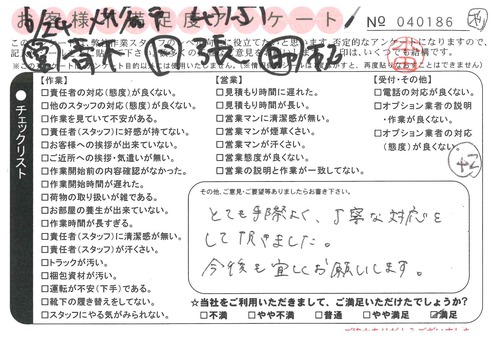 お客様満足度アンケート
No 040186
【作業】
□責任者の対応(態度)が良くない。
□他のスタッフの対応(態度)が良くない。
□作業を見ていて不安がある。
□責任者(スタッフ)に好感が持てない。
□お客様への挨拶が出来ていない。
□ご近所への挨拶・気遣いが無い。
□作業開始前の内容確認がなかった。
□作業開始時間が遅れた。
□荷物の取り扱いが雑である。
□お部屋の養生が出来ていない。
□作業時間が長すぎる。
□責任者(スタッフ)に清潔感が無い。
□責任者(スタッフ)が汗くさい。
□トラックが汚い。
□梱包資材が汚い。
□運転が不安(下手)である。
□靴下の履き替えをしてない。
□スタッフにやる気がみられない。
【営業】
□見積もり時間に遅れた。
□見積もり時間が長い。
□営業マンに清潔感が無い。
□営業マンが煙草くさい。
□営業マンが汗くさい。
□営業態度が良くない。
□営業の説明と作業が一致してない。
【受付・その他】
□電話の対応が良くない。
□オプション業者の説明
・作業が良くない。
□オプション業者の対応
(態度)が良くない。
チェックリスト
その他、ご意見・ご要望等ありましたらお書き下さい。
とても手際よく、丁寧な対応を
して頂きました。
今後も宜しくお願いします。
☆当社をご利用いただきまして、ご満足いただけたでしょうか?
□不満 □やや不満 □普通 □やや満足 ☑満足